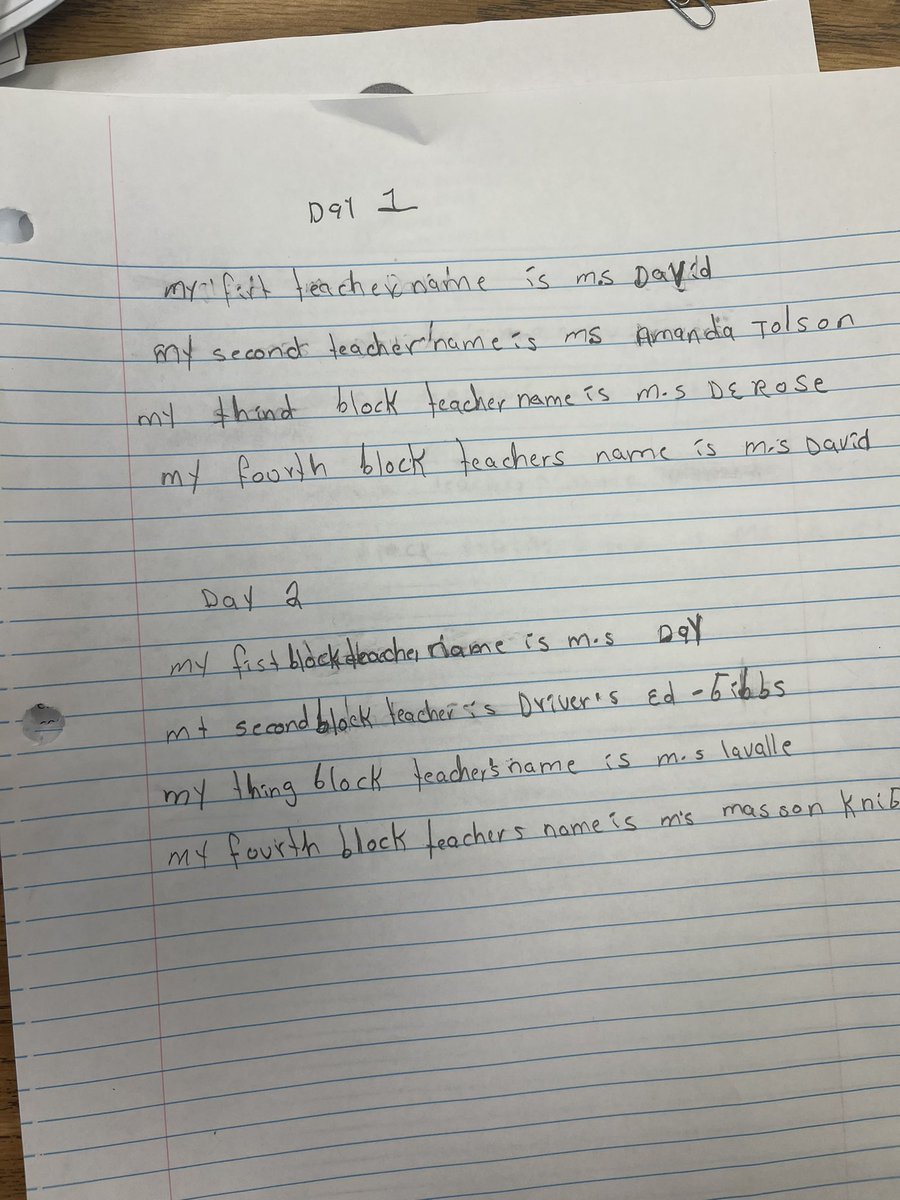 Day 1
my fist teacher name is m.s David
my second teacher name is ms Amanda Tolson
my thind block teacher name is m.s DEROSE
my fourth block teachers name is m.s David
Day 2
my fist block teacher name is m.s Day
mt second block teacher is Driver's Ed - Gibbs
my thing block teacher's name is m.s lavalle
my fourth block teachers name is m's masson